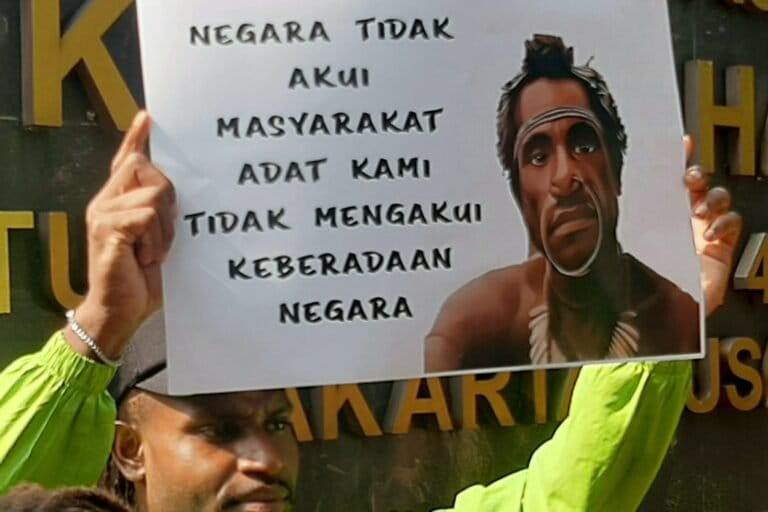 NEGARA TIDAK
AKUI
MASYARAKAT
ADAT KAMI
TIDAK MENGAKUI
KEBERADAAN
NEGARA